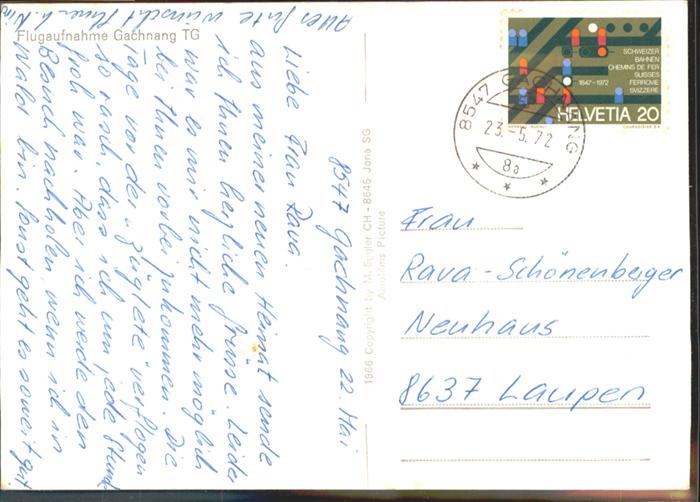 Flugaufnahme Gachnang TG
8547 Gachnang 22. Mai
Liebe Frau Rava.
aus meiner neuen Heimat sende
ich Ihnen herzliche Grüsse. Leider
war es mir nicht mehr möglich
bei Ihnen vorbei zukommen. Die
Tage vor der "Züglete" verflogen
so rasch, dass ich um jede Stunde
froh war. Aber ich werde den
Besuch nachholen wenn ich in
Wald bin. Sonst geht es soweit gut
Alles Gute wünscht Ihnen
1966 Copyright by M. Eggler CH - 8645 Jona SG
Aerofilms Picture
SCHWEIZER
BAHNEN
CHEMINS DE FER
SUISSES
FERROVIE
SVIZZERE
1847-1972
HELVETIA 20
COURVOISIER S.A.
8547 GACHNANG
23.-5.72
8a
Frau
Rava-Schönenberger
Neuhaus
8637 Laupen